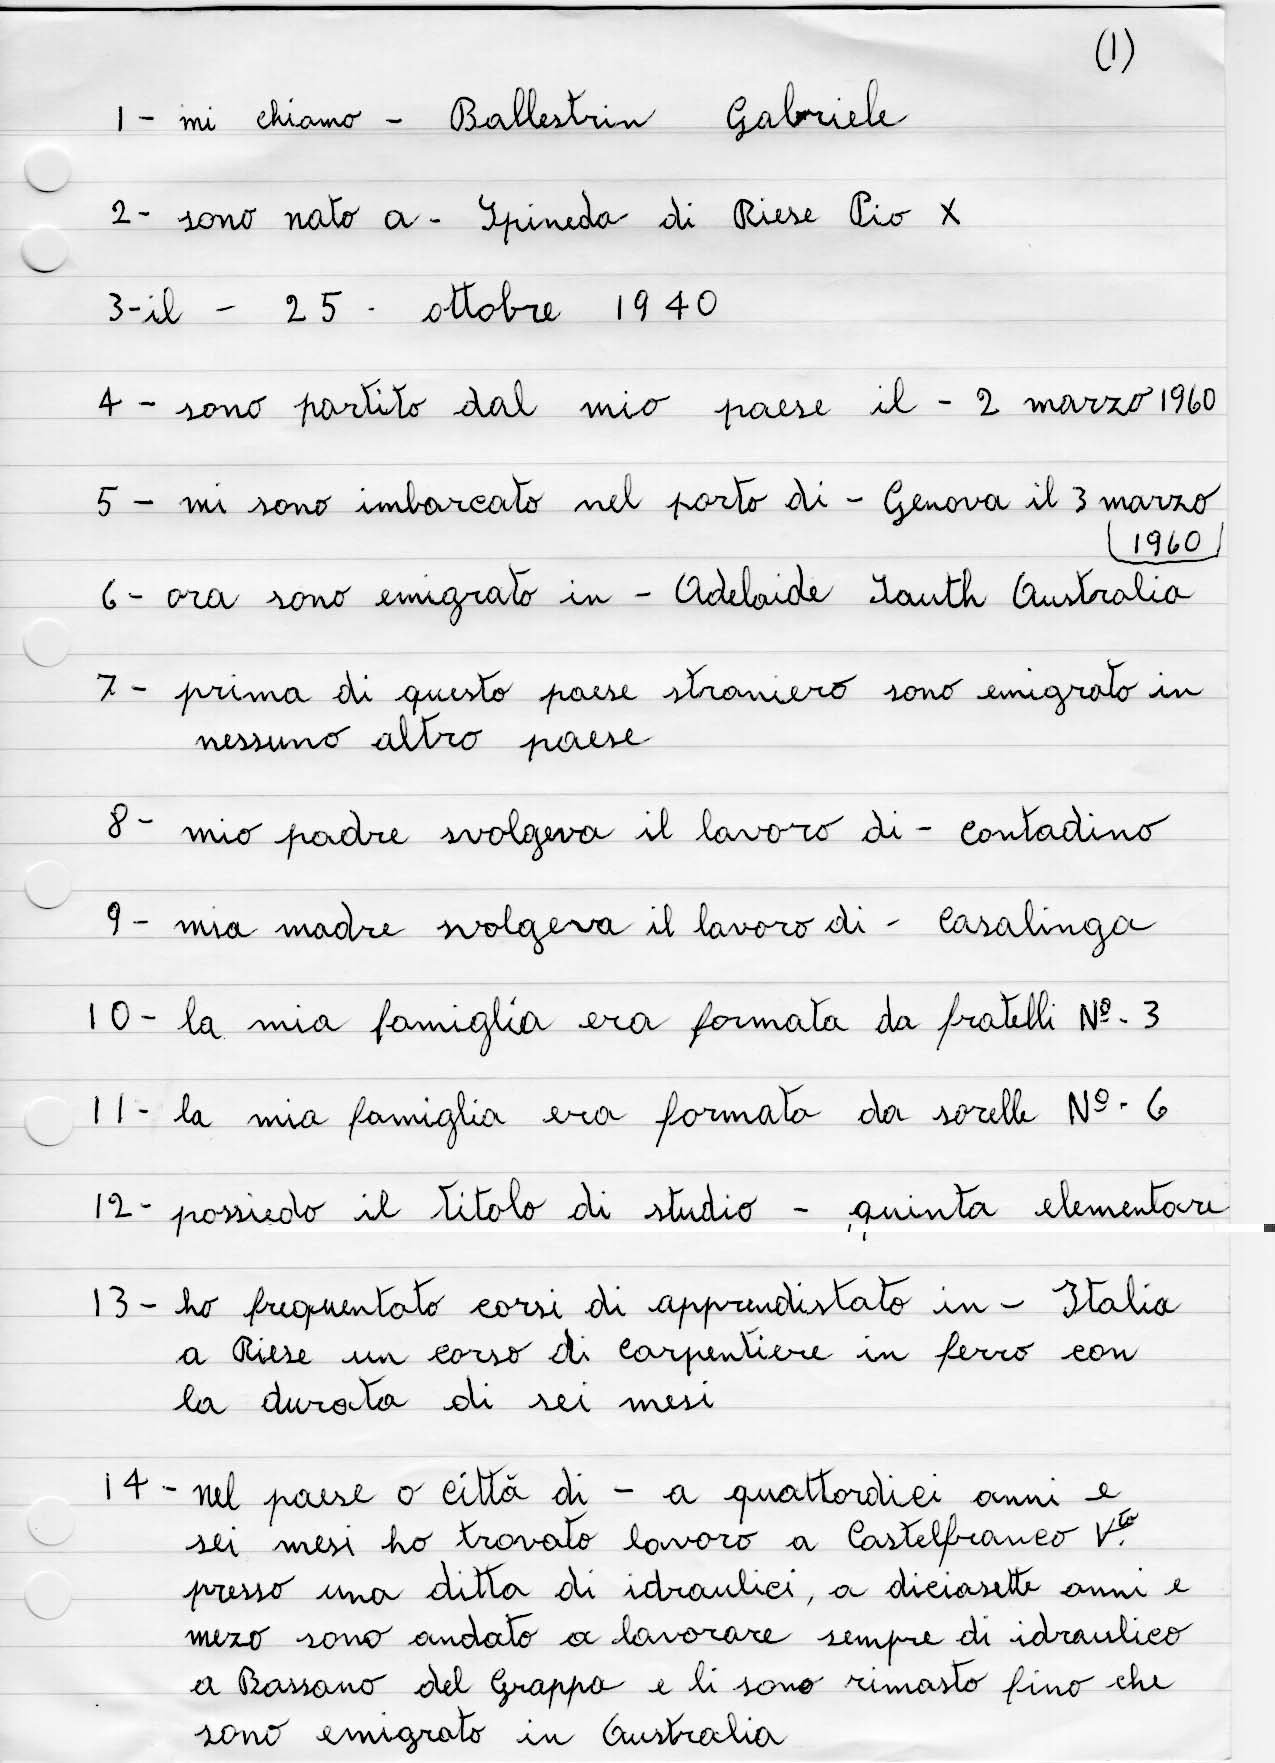 (1)
1 - mi chiamo - Ballestrin Gabriele
2 - sono nato a - Spineda di Riese Pio X
3 - il - 25 . ottobre 1940
4 - sono partito dal mio paese il - 2 marzo 1960
5 - mi sono imbarcato nel porto di - Genova il 3 marzo
1960
6 - ora sono emigrato in - Adelaide Sauth Australia
7 - prima di questo paese straniero sono emigrato in
nessuno altro paese
8 - mio padre svolgeva il lavoro di - contadino
9 - mia madre svolgeva il lavoro di - casalinga
10 - la mia famiglia era formata da fratelli Nº - 3
11 - la mia famiglia era formata da sorelle Nº - 6
12 - possiedo il titolo di studio - quinta elementare
13 - ho frequentato corsi di apprendistato in - Italia
a Riese un corso di carpentiere in ferro con
la durata di sei mesi
14 - nel paese o città di - a quattordici anni e
sei mesi ho trovato lavoro a Castelfranco V.to
presso una ditta di idraulici, a diciasette anni e
mezo sono andato a lavorare sempre di idraulico
a Bassano del Grappa e li sono rimasto fino che
sono emigrato in Australia